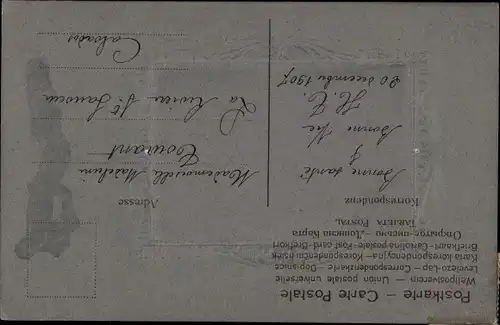 Postkarte — Carte Postale
Weltpostverein — Union postale universelle
Levelező-Lap — Correspondenzkarte — Dopisnice
Karta korespondencyjna — Korespondenční lístek
Briefkaart — Carolina postale — Post card — Brefkort
Открытое письмо — Дописна Карта
TARJETA POSTAL
Korrespondenz
Bonne santé
&
Bonne
H. C.
20 décembre 1907
Adresse
Mademoiselle
Courant
La
St
Calvados